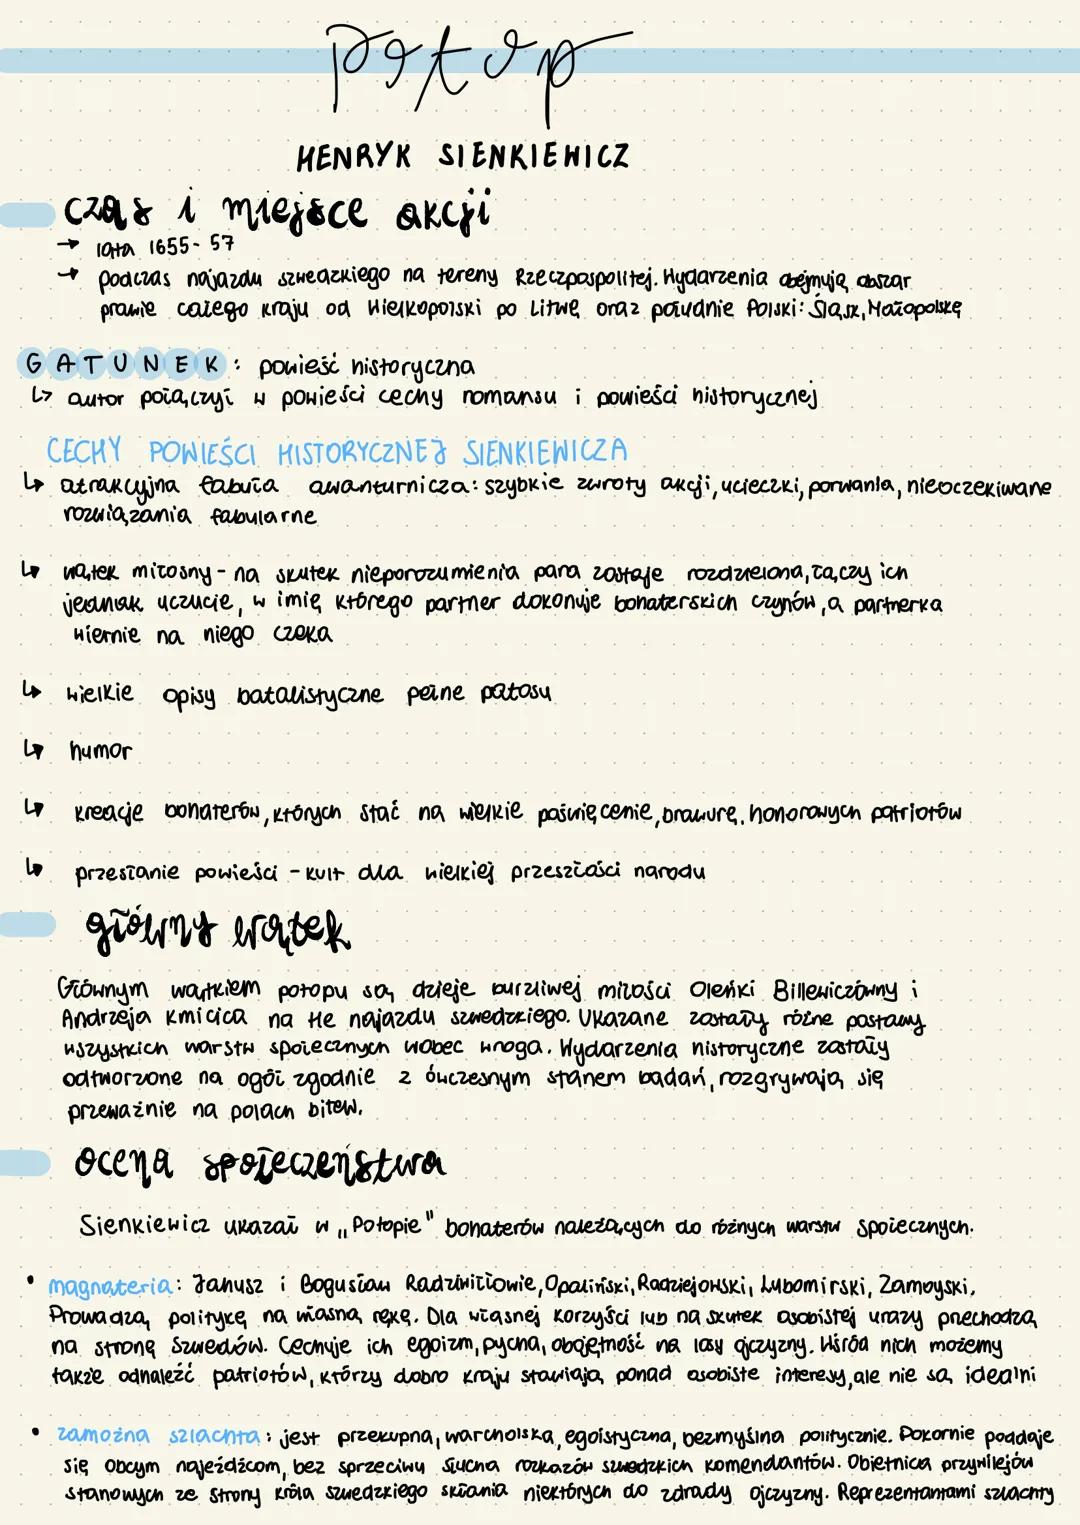 potop
HENRYK SIENKIEWICZ
czas i miejsce akcji
→ lata 1655-57
→ podczas najazdu szwedzkiego na tereny Rzeczpospolitej. Wydarzenia obejmują obszar
prawie całego kraju od Wielkopolski po Litwę oraz południe Polski: Śląsk, Małopolskę
GATUNEK: powieść historyczna
↳ autor połączył w powieści cechy romansu i powieści historycznej
CECHY POWIEŚCI HISTORYCZNEJ SIENKIEWICZA
↳ atrakcyjna fabuła awanturnicza: szybkie zwroty akcji, ucieczki, porwania, nieoczekiwane
rozwiązania fabularne
↳ wątek miłosny - na skutek nieporozumienia para zostaje rozdzielona, łączy ich
jednak uczucie, w imię którego partner dokonuje bohaterskich czynów, a partnerka
wiernie na niego czeka
↳ wielkie opisy batalistyczne pełne patosu
↳ humor
↳ kreacje bohaterów, których stać na wielkie poświęcenie, brawurę, honorowych patriotów
↳ przesłanie powieści - kult dla wielkiej przeszłości narodu
główny wątek
Głównym wątkiem potopu są dzieje burzliwej miłości Oleńki Billewiczówny i
Andrzeja Kmicica na tle najazdu szwedzkiego. Ukazane zostały różne postawy
wszystkich warstw społecznych wobec wroga. Wydarzenia historyczne zostały
odtworzone na ogół zgodnie z ówczesnym stanem badań, rozgrywają się
przeważnie na polach bitew.
ocena społeczeństwa
Sienkiewicz ukazał w „Potopie" bohaterów należących do różnych warstw społecznych.
• magnateria: Janusz i Bogusław Radziwiłłowie, Opaliński, Radziejowski, Lubomirski, Zamoyski.
Prowadzą politykę na własną rękę. Dla własnej korzyści lub na skutek osobistej urazy przechodzą
na stronę Szwedów. Cechuje ich egoizm, pycha, obojętność na losy ojczyzny. Wśród nich możemy
także odnaleźć patriotów, którzy dobro kraju stawiają ponad osobiste interesy, ale nie są idealni
• zamożna szlachta: jest przekupna, warcholska, egoistyczna, bezmyślna politycznie. Pokornie poddaje
się obcym najeźdźcom, bez sprzeciwu słucha rozkazów szwedzkich komendantów. Obietnica przywilejów
stanowych ze strony króla szwedzkiego skłania niektórych do zdrady ojczyzny. Reprezentantami szlachty